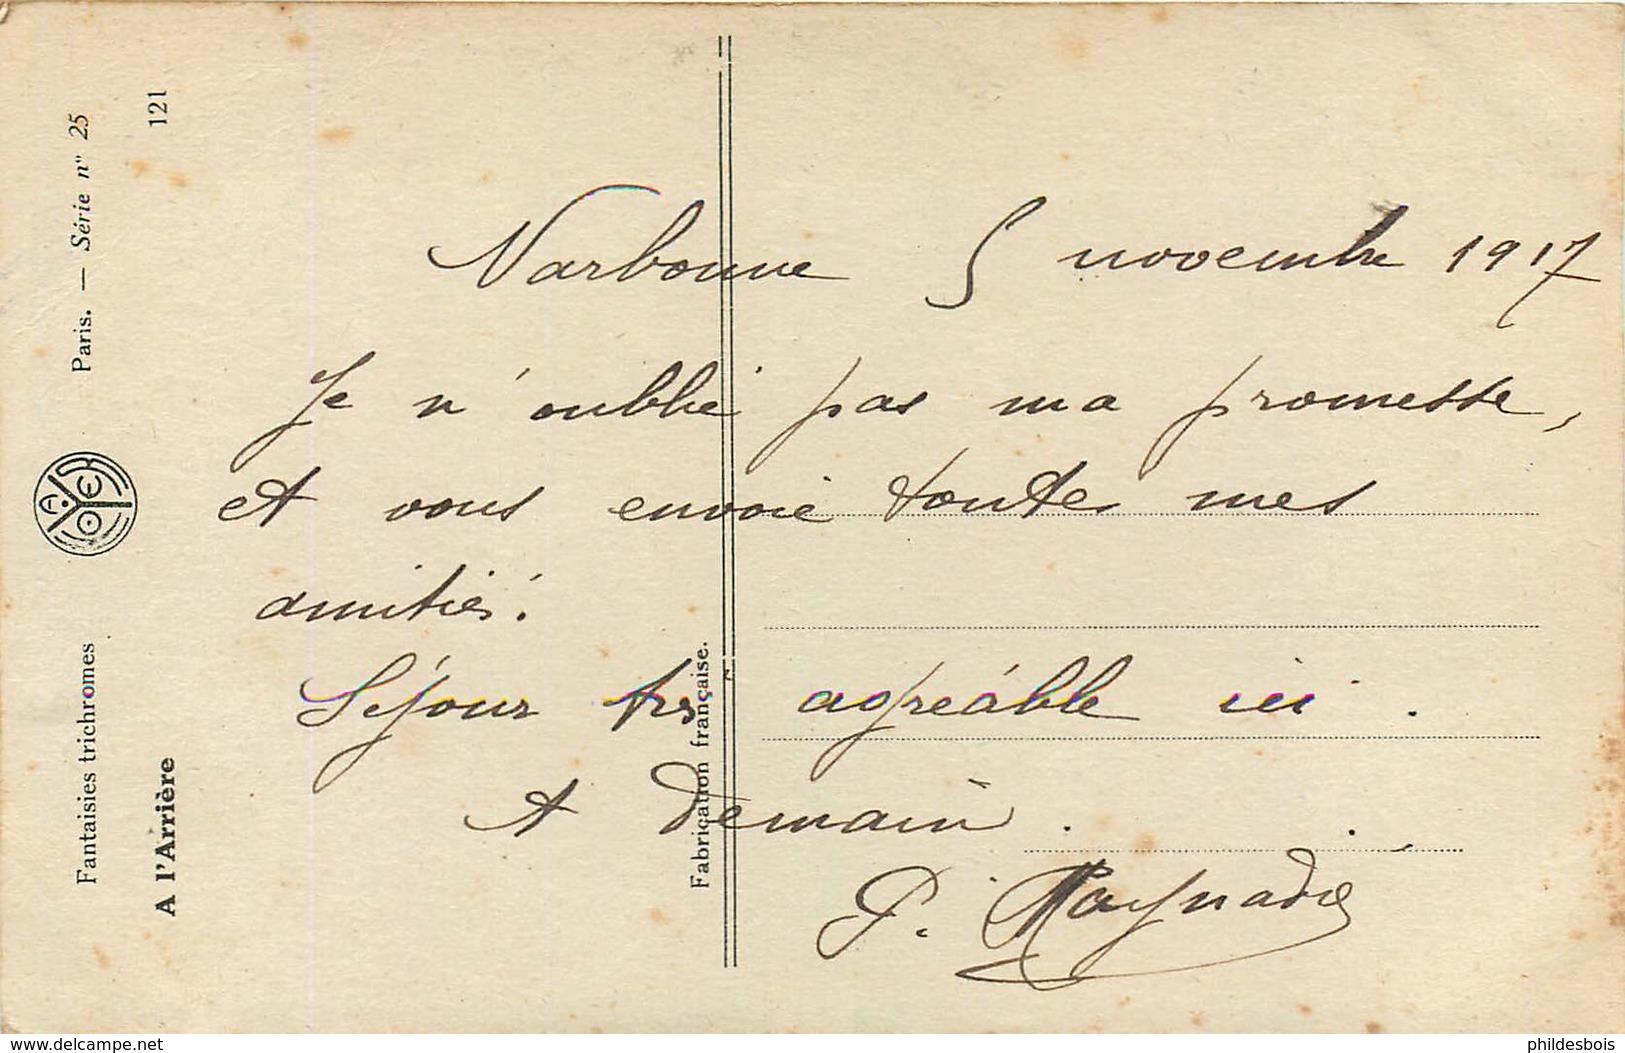 Narbonne 5 novembre 1917
Je n'oublié pas ma promesse,
et vous envoie toutes mes
amitiés.
Séjour très agréable ici.
A demain.
P. Raynadié
Fabrication française.
Fantaisies trichromes Paris. — Série n° 25
A l'Arrière 121
www.delcampe.net
phildesbois